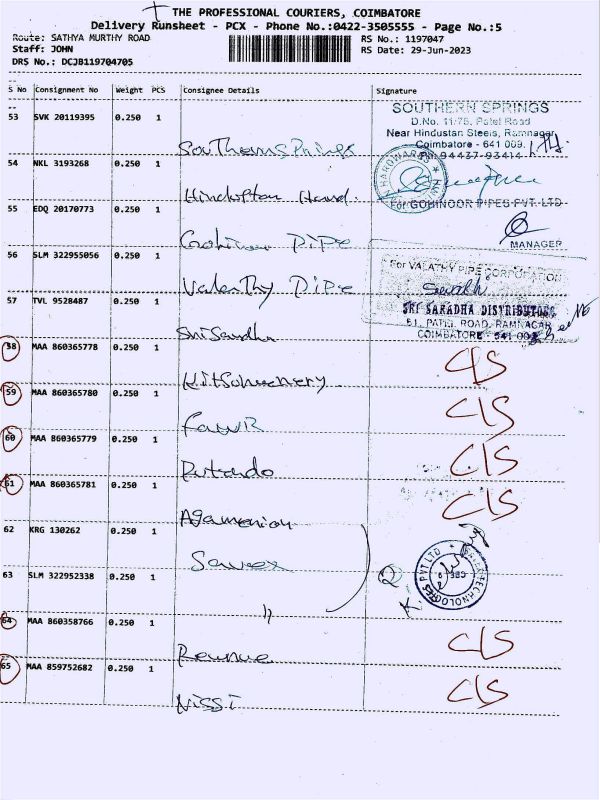 THE PROFESSIONAL COURIERS, COIMBATORE
Delivery Runsheet - PCX - Phone No.:0422-3505555 - Page No.:5
Route: SATHYA MURTHY ROAD
RS No.: 1197047
Staff: JOHN
RS Date: 29-Jun-2023
DRS No.: DCJB119704705
S No Consignment No Weight PCS Consignee Details Signature
53 SVK 20119395 0.250 1
Southern Springs
SOUTHERN SPRINGS
D.No. 11/75, Patel Road
Near Hindustan Steels, Ramnagar
Coimbatore - 641 009.
Ph: 94437-93414
54 NKL 3193268 0.250 1
HARDWARES
For GOHINOOR PIPES PVT. LTD
55 EDQ 20170773 0.250 1
Gohinoor Pipe
MANAGER
56 SLM 322955056 0.250 1
Valathy Pipe
For VALATHY PIPE CORPORATION
57 TVL 9528487 0.250 1
SRI SARADHA DISTRIBUTORS
51, PATEL ROAD, RAMNAGAR
COIMBATORE - 641 009
58 MAA 860365778 0.250 1
C/S
59 MAA 860365780 0.250 1
C/S
60 MAA 860365779 0.250 1
C/S
61 MAA 860365781 0.250 1
C/S
62 KRG 130262 0.250 1
63 SLM 322952338 0.250 1
TECHNOLOGIES PVT LTD
64 MAA 860358766 0.250 1
C/S
65 MAA 859752682 0.250 1
Nissi C/S